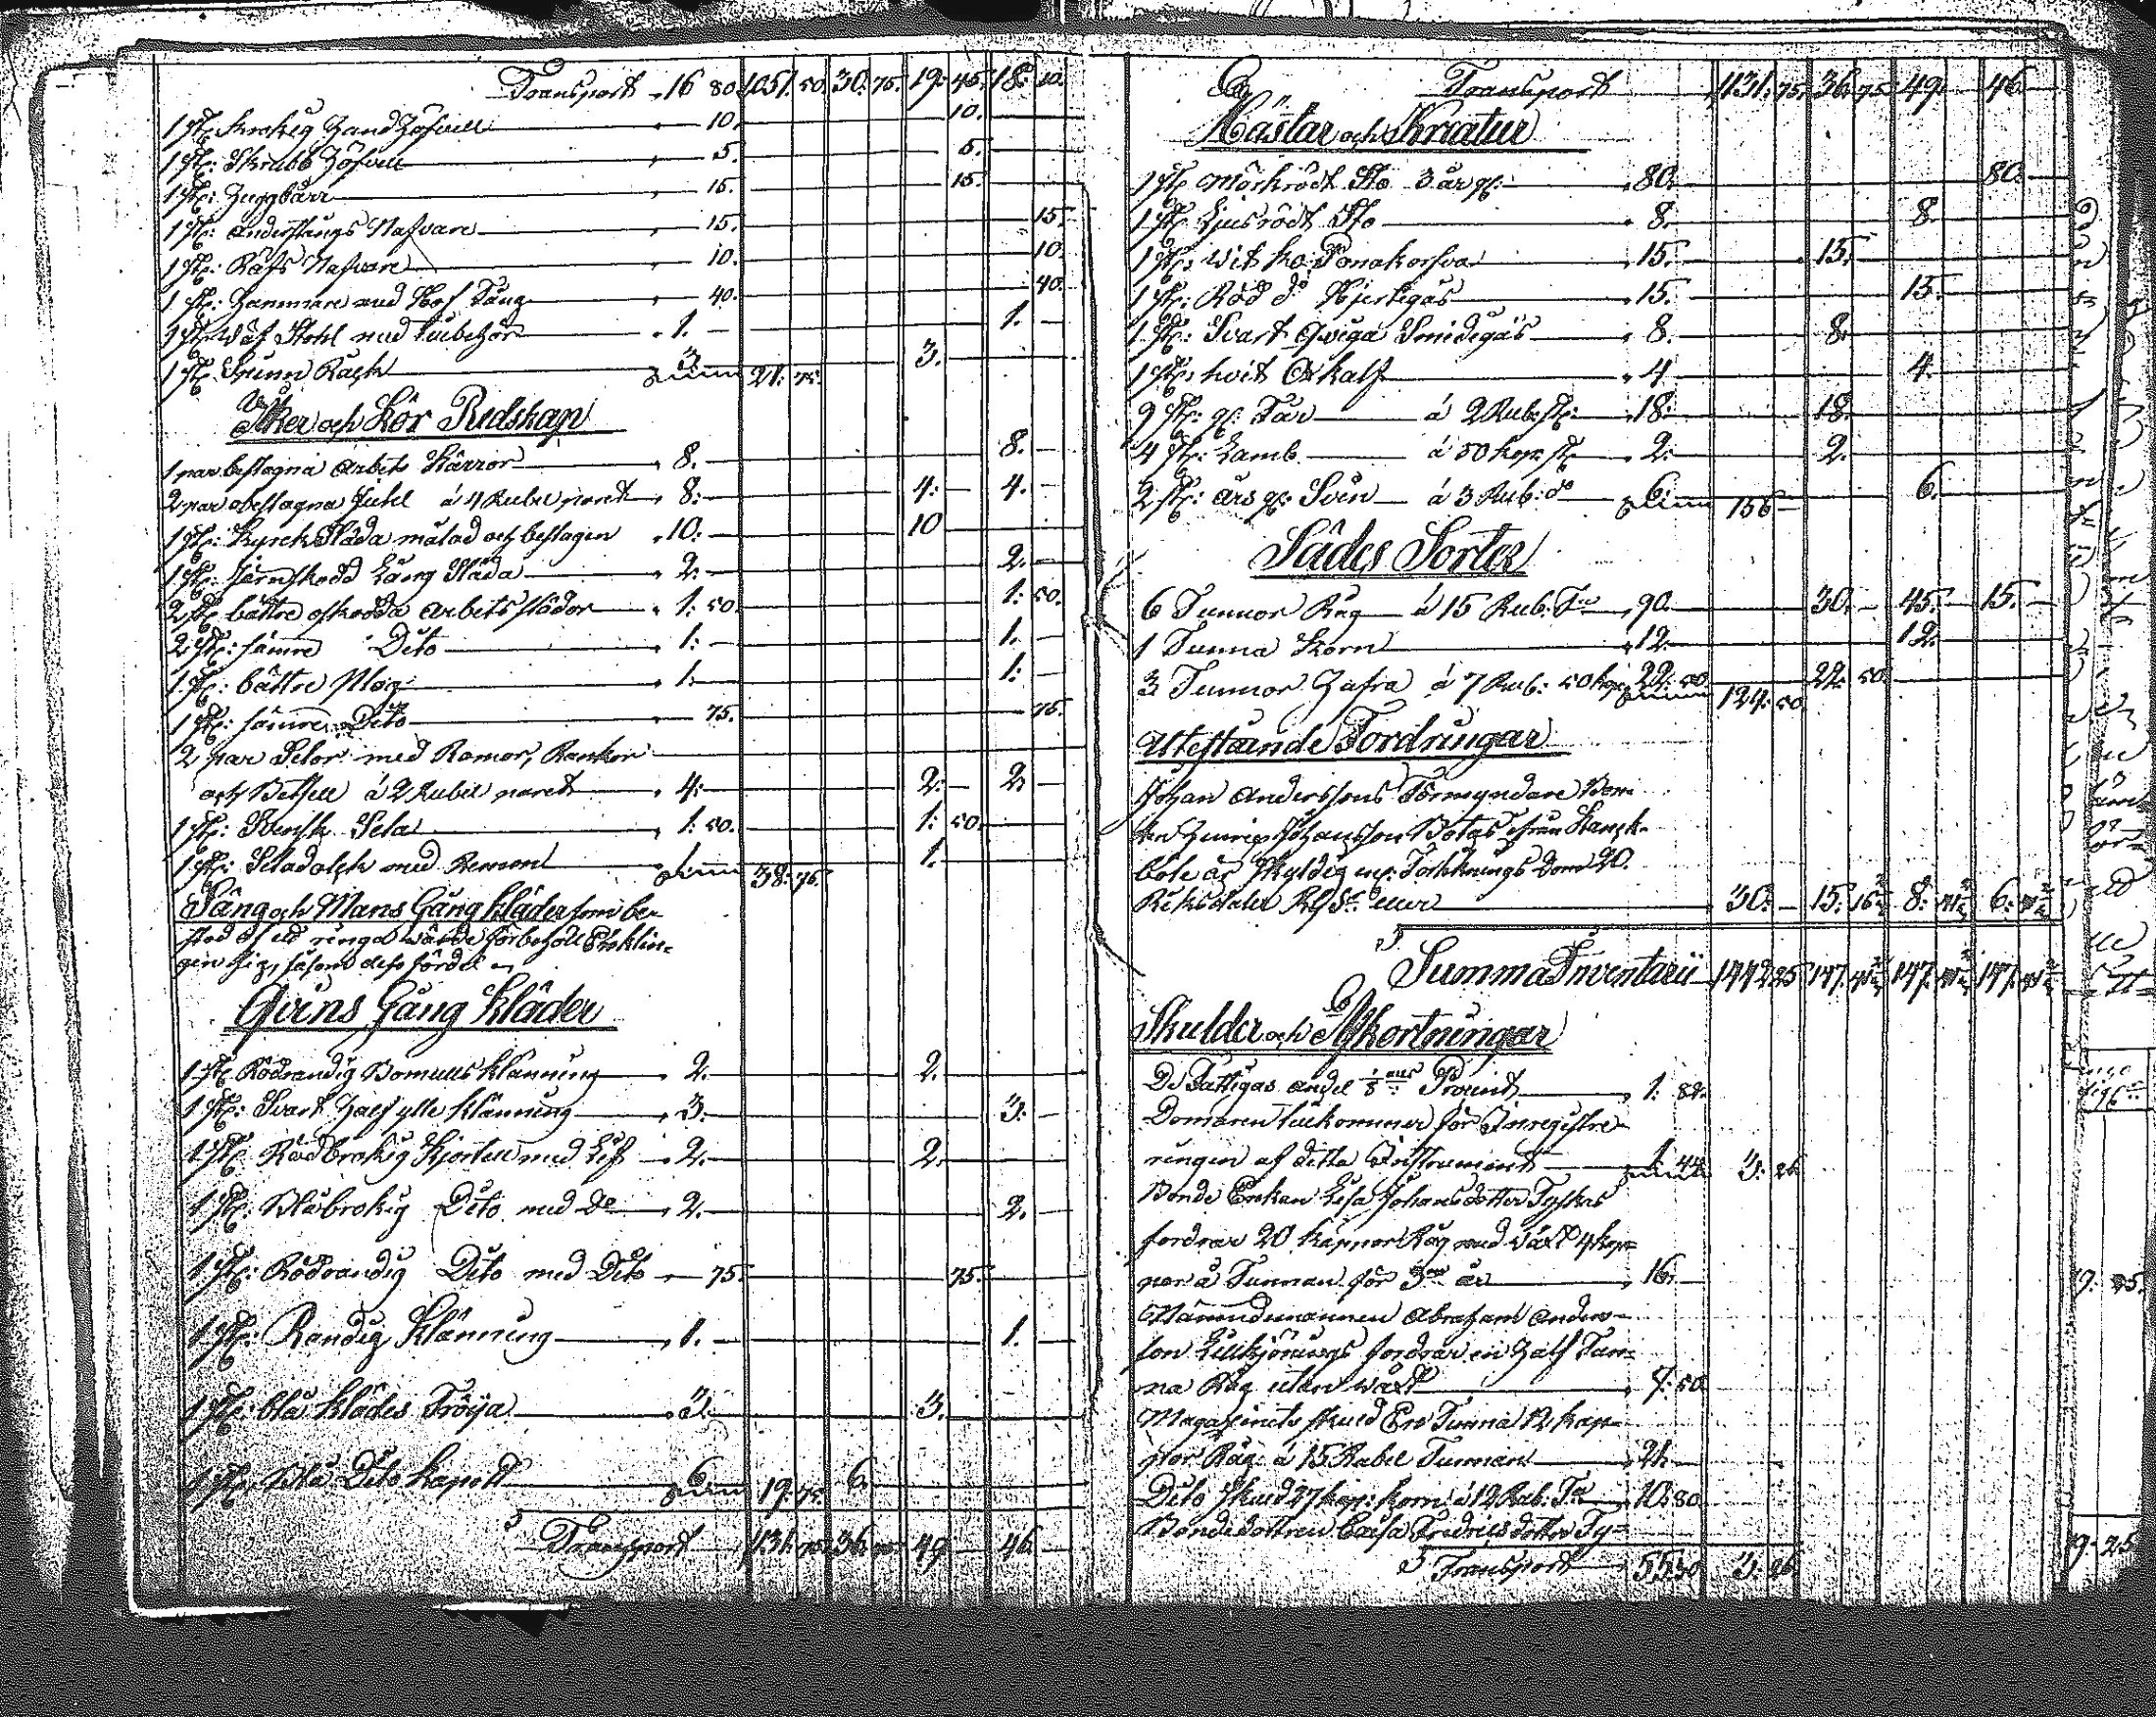 Transport 16 80 1051. 50. 30. 75. 19: 45. 18: 10.
1 st: krokig Handhöfvell 10. 10.
1 st: Skrubb Höfvell 5. 5.
1 st: Huggbärr 15. 15.
1 st: Anderstångs Nafvare 15. 15.
1 st: Räfs Nafvare 10. 10.
1 st: Hammare med Hof Tång 40. 40.
1 st: Wäf Stohl med tilbehör 1. 1.
1 st: Spinn Råck 3. 21: 75. 3.
Åker och Kör Redskap
1 par beslagna Arbets Kärror 8. 8.
2 par obeslagna hjuhl á 4 Rubel paret 8: 4: 4.
1 st: Kyrck Släda målad och beslagen 10: 10
1 st: järnskodd Lång Släda 2. 2.
2 st: bättre oskodda Arbets slädor 1: 50. 1: 50.
2 st: sämre Dito 1: 1.
1 st: bättre Plog 1: 1:
1 st: sämre Dito 75. 75.
2 par Selor med Ramor, Rankor
och Betsell á 2 Rubel paret 4: 2: 2:
1 st: Svensk Sela 1: 50. 1: 50.
1 st: Seladolsk med Remont 1. 38: 75. 1.
Säng och Mans Gång kläder som be-
stod af ett ringa värde förbehöll Encklin-
gen sig, såsom dess fördel
Qvins Gång kläder
1 st: Rödrandig Bomulls klänning 2. 2.
1 st: Svart Half ylle klänning 3: 3:
1 st: Rödbrokig Kjortell med Lif 2. 2.
1 st: Blåbrokig Dito med Do 2. 2.
1 st: Rödrandig Dito med Dito 75. 75.
1 st: Randig Klänning 1. 1.
1 st: blå klädes Tröija 3. 3.
1 st: Blå Dito kapott 6. 19: 75. 6.
Transport 1131. 75. 36. 75. 49 46
Transport 1131: 75. 36: 75 49. 46
Hästar och Kreatur
1 st: Mörkrödt Sto 3 år gl: 80. 80.
1 st: Ljusrödt Sto 8. 8.
1 st: Wit ko 15. 15.
1 st: Röd do Hjertegås 15. 15.
1 st: Svart Qviga Smidegås 8. 8.
1 st: hvit Oxkalf 4 4.
9 st: gl: Får á 2 Rub: st: 18: 18.
4 st: Lamb á 50 kop: st: 2: 2.
2 st: års gl: Svin á 3 Rub: do 6: 156 6.
Sädes Sorter
6 Tunnor Råg á 15 Rub: Tn 90. 30. 45. 15.
1 Tunna Korn 12. 12.
3 Tunnor Hafra á 7 Rub: 50 kop: 22: 50 124: 50. 22: 50
Utestående Fordringar
Johan Anderssons Förmyndare Bon-
den Henrik Johansson Botas ifrån Starck-
böle är skyldig enl: Tolcknings Dom 20.
Riksdaler RgS eller 30: 15: 8: 6:
Summa Inventarii 1442 25 147. 147. 147.
Skulder och Afkortningar
De Fattigas andel 1/8 Procent 1: 82.
Domaren tillkommer för Inregistre-
ringen af detta Instrument 1: 44 3: 26.
Bonde Enkan Lisa Johansdotter Tyskas
fordrar 20 kappor Råg med växt 4 kap-
por á Tunnan för 3ne år 16.
Nämndemannen Abraham Anders-
son Lillkjörings fordrar en Half Tun-
na Råg utan växt 7: 50
Magasinets skuld En Tunna 12 kap-
por Råg á 15 Rubel Tunnan 21.
Dito skuld 27 kap: korn á 12 Rub: Tn 10: 80.
Bondedottren Caisa Fredricsdotter Ty-
Transport 55: 30 3: 26.